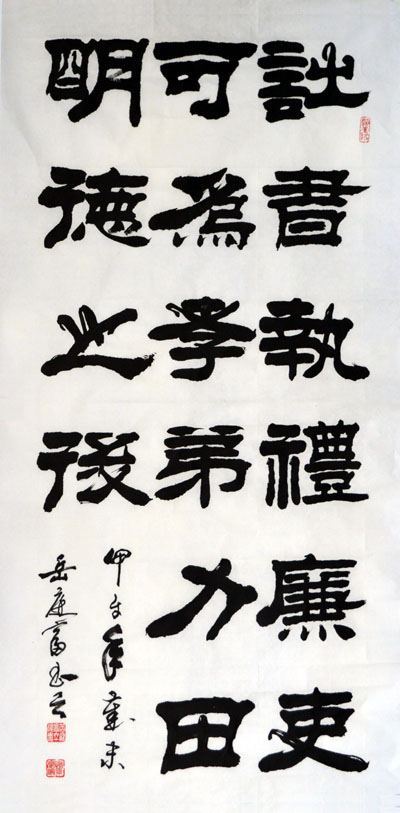 詩書執禮廉吏
可為孝弟力田
明德之後
甲午年歲末
岳